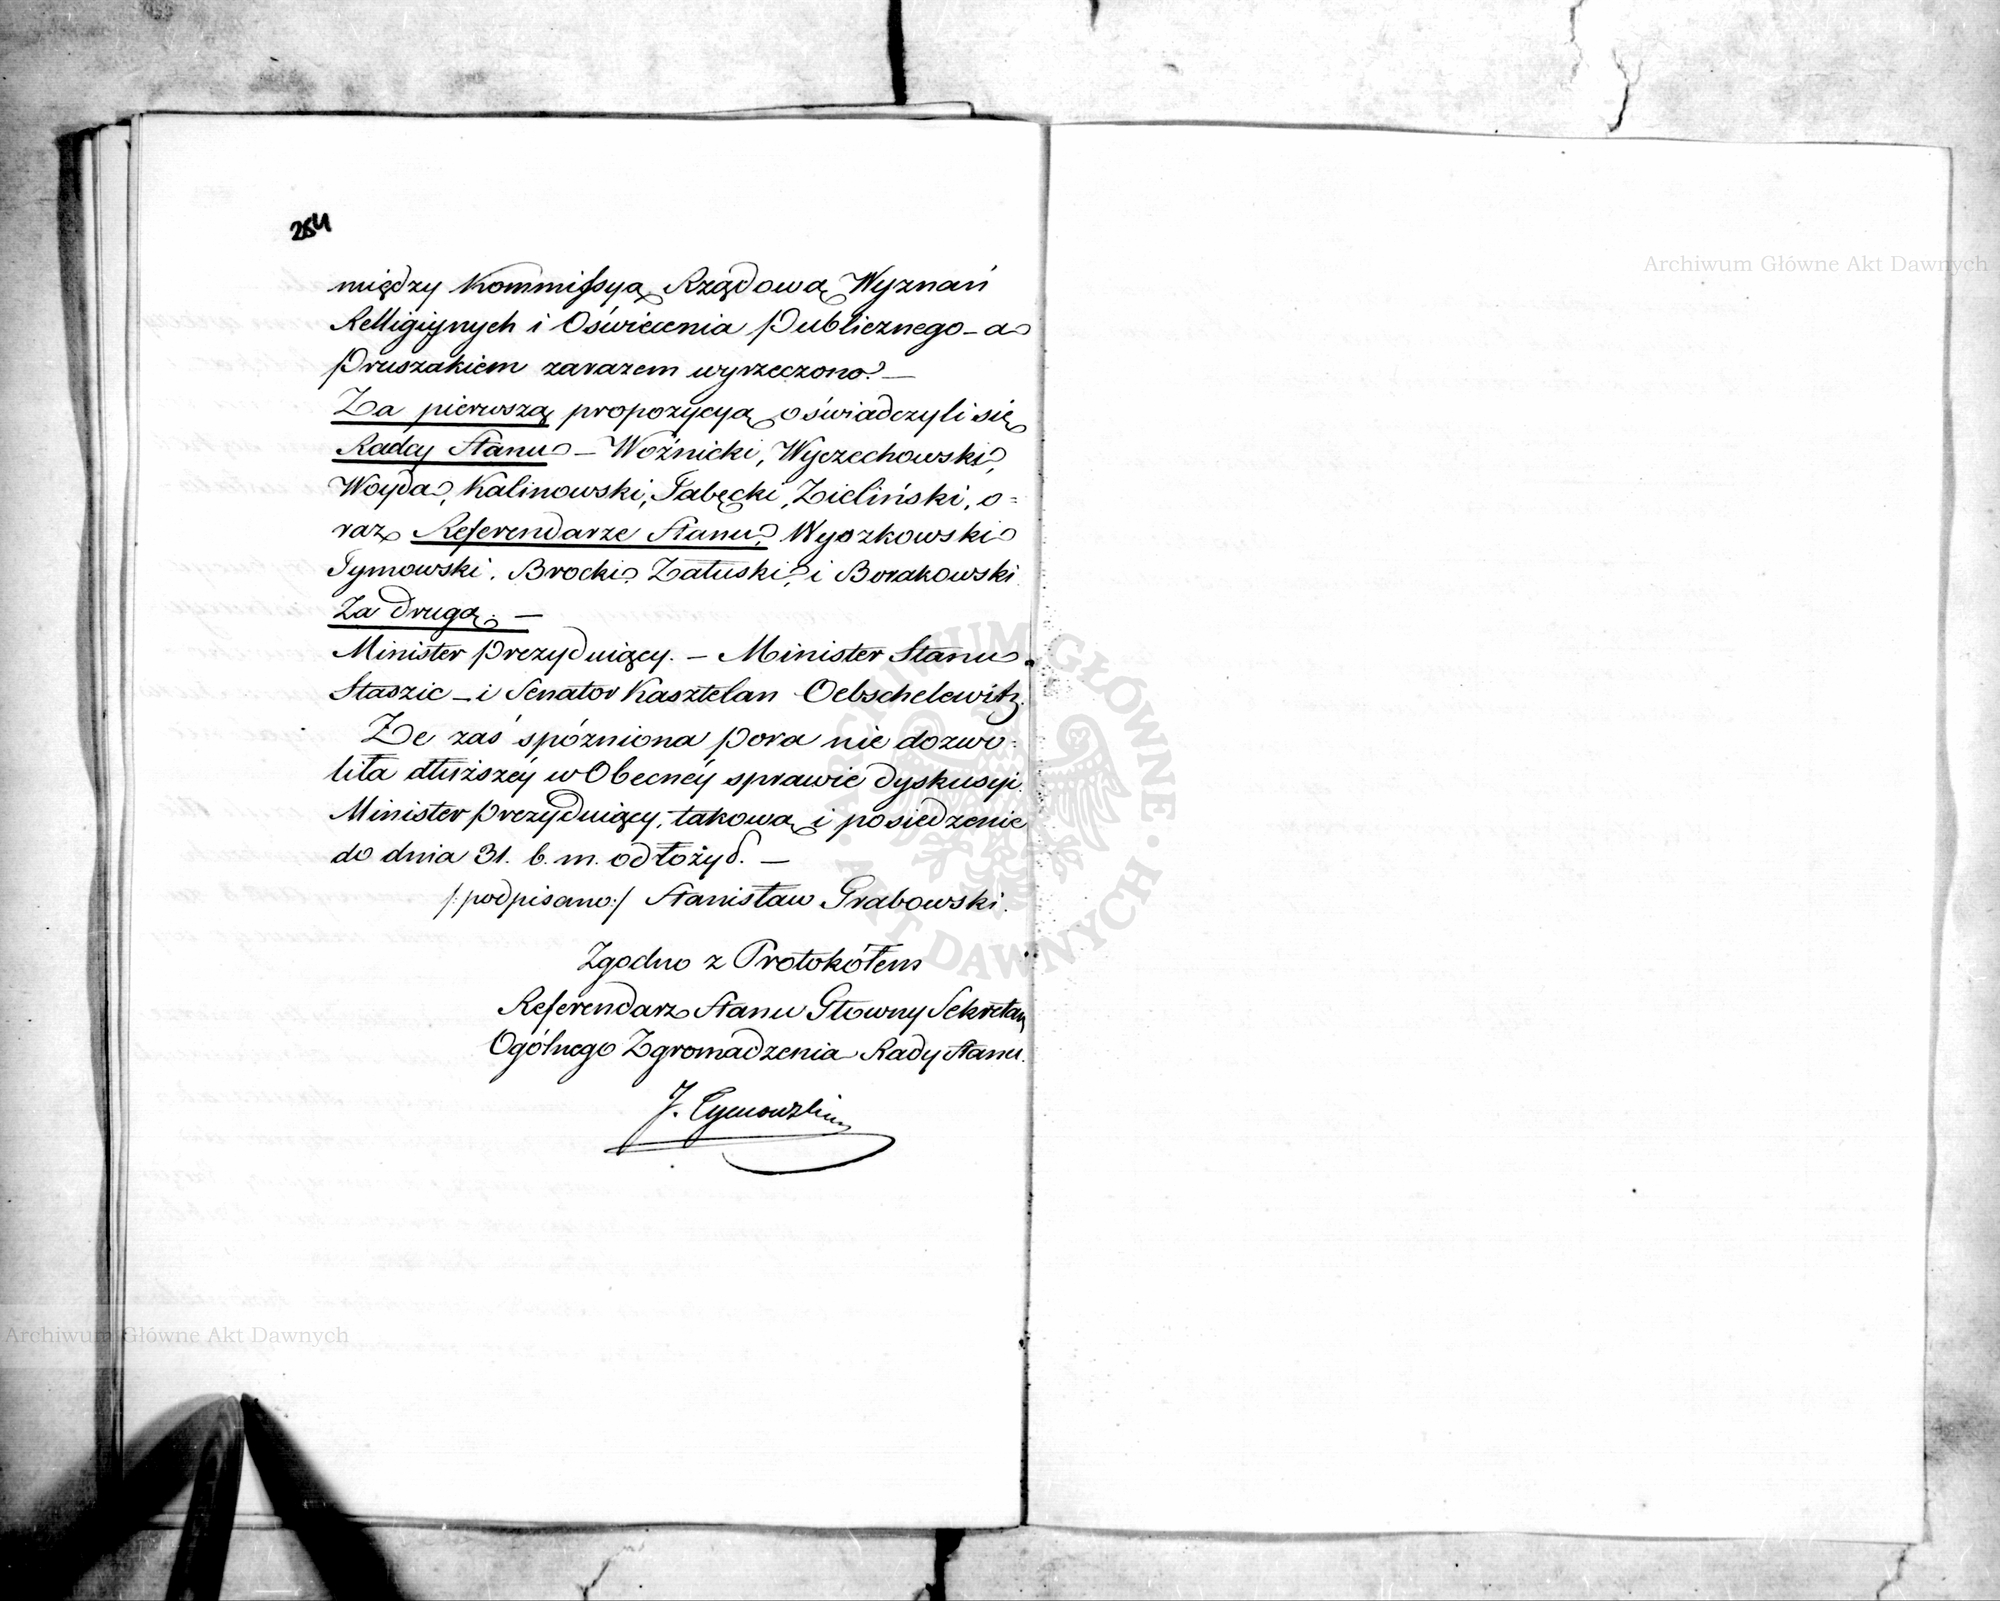 254
między Kommissyą Rządową Wyznań
Relligiynych i Oświecenia Publicznego – a
Pruszakiem zarazem wyrzeczono. –
Za pierwszą propozycyą oświadczyli się
Radcy Stanu – Woźnicki, Wyczechowski,
Woyda, Kalinowski, Tabęcki, Zieliński, o=
raz Referendarze Stanu, Wyszkowski
Tymowski, Brocki, Załuski, i Borakowski
Za drugą. –
Minister Prezyduiący. – Minister Stanu
Staszic – i Senator Kasztelan Oebschelewitz.
Że zaś spóźniona pora nie dozwo=
liła dłuższéy w Obecnéy sprawie dyskusyi.
Minister Prezyduiący, takową i posiedzenie
do dnia 31. b. m. odłożył. –
/:podpisano:/ Stanisław Grabowski.
Zgodno z Protokółem
Referendarz Stanu Głowny Sekretarz
Ogólnego Zgromadzenia Rady Stanu.
J. Tymowski
Archiwum Główne Akt Dawnych
Archiwum Główne Akt Dawnych
ARCHIWUM GŁÓWNE · AKT DAWNYCH ·